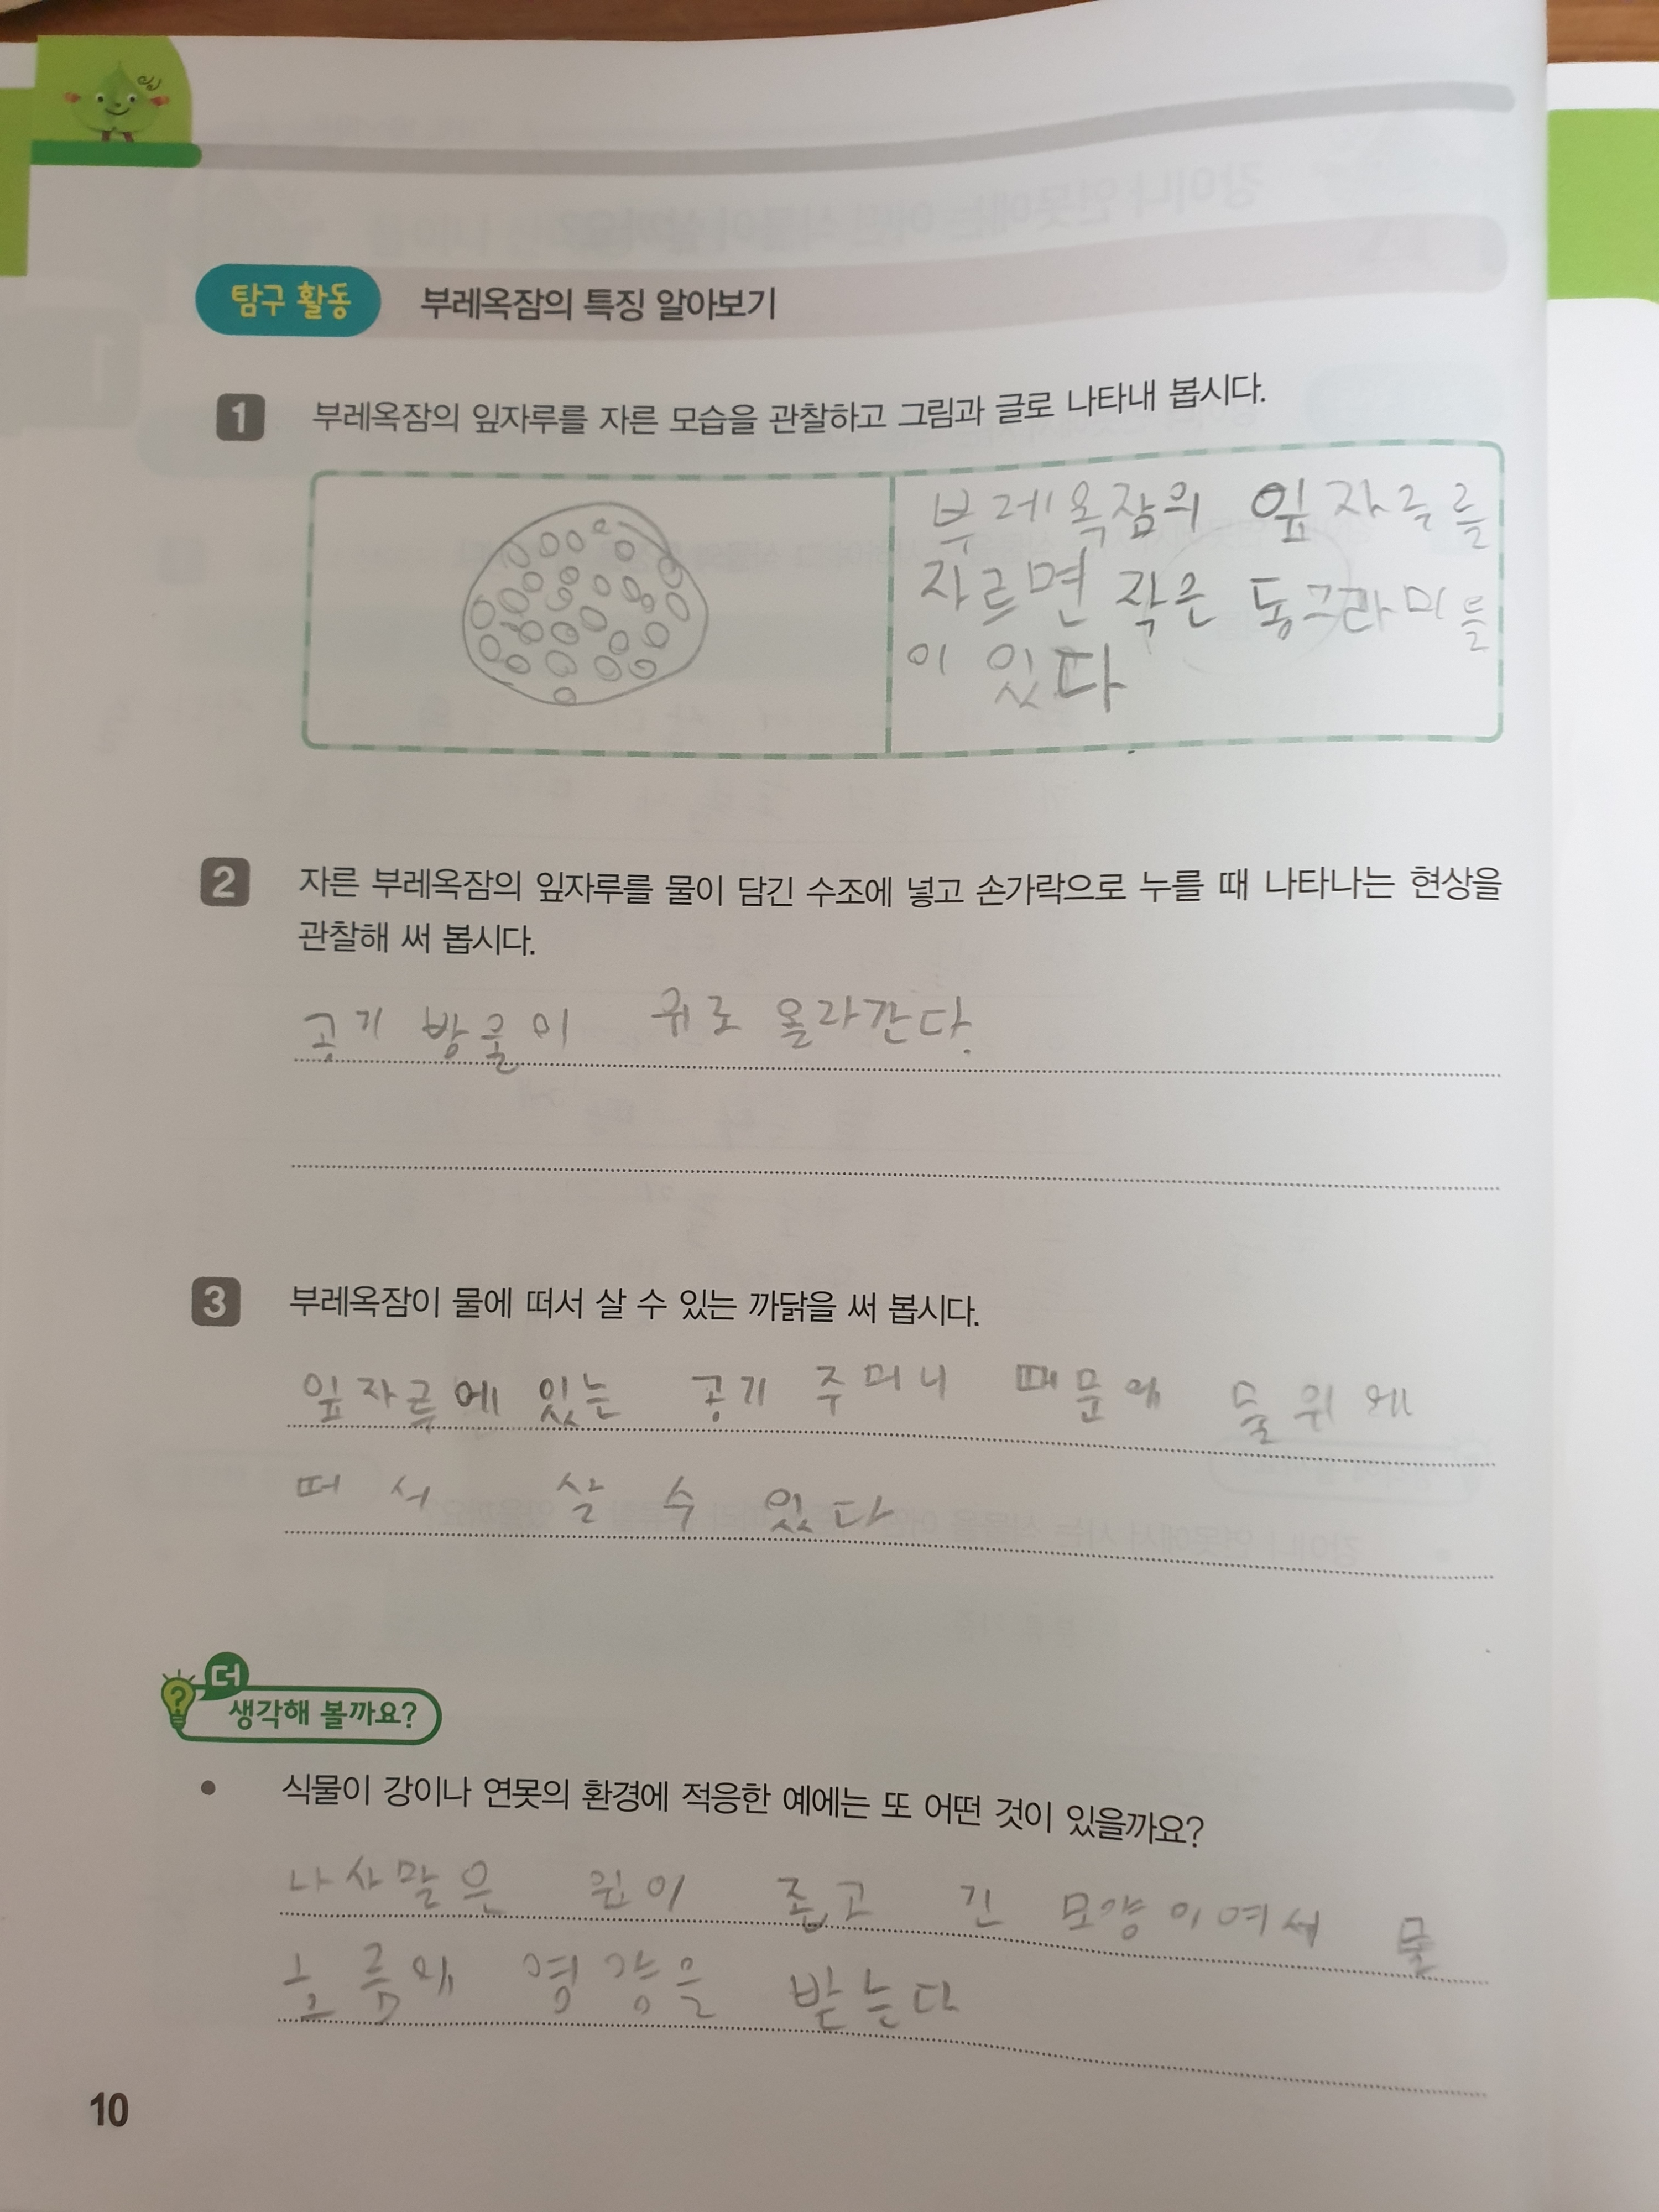 탐구 활동 부레옥잠의 특징 알아보기
1 부레옥잠의 잎자루를 자른 모습을 관찰하고 그림과 글로 나타내 봅시다.
부레옥잠의 잎자루를
자르면 작은 동그라미들
이 있다
2 자른 부레옥잠의 잎자루를 물이 담긴 수조에 넣고 손가락으로 누를 때 나타나는 현상을
관찰해 써 봅시다.
공기 방울이 위로 올라간다.
3 부레옥잠이 물에 떠서 살 수 있는 까닭을 써 봅시다.
잎자루에 있는 공기 주머니 때문에 물위에
떠서 살 수 있다
더
생각해 볼까요?
식물이 강이나 연못의 환경에 적응한 예에는 또 어떤 것이 있을까요?
나사말은 좁고 긴 모양이여서 물
흐름에 영향을 받는다
10